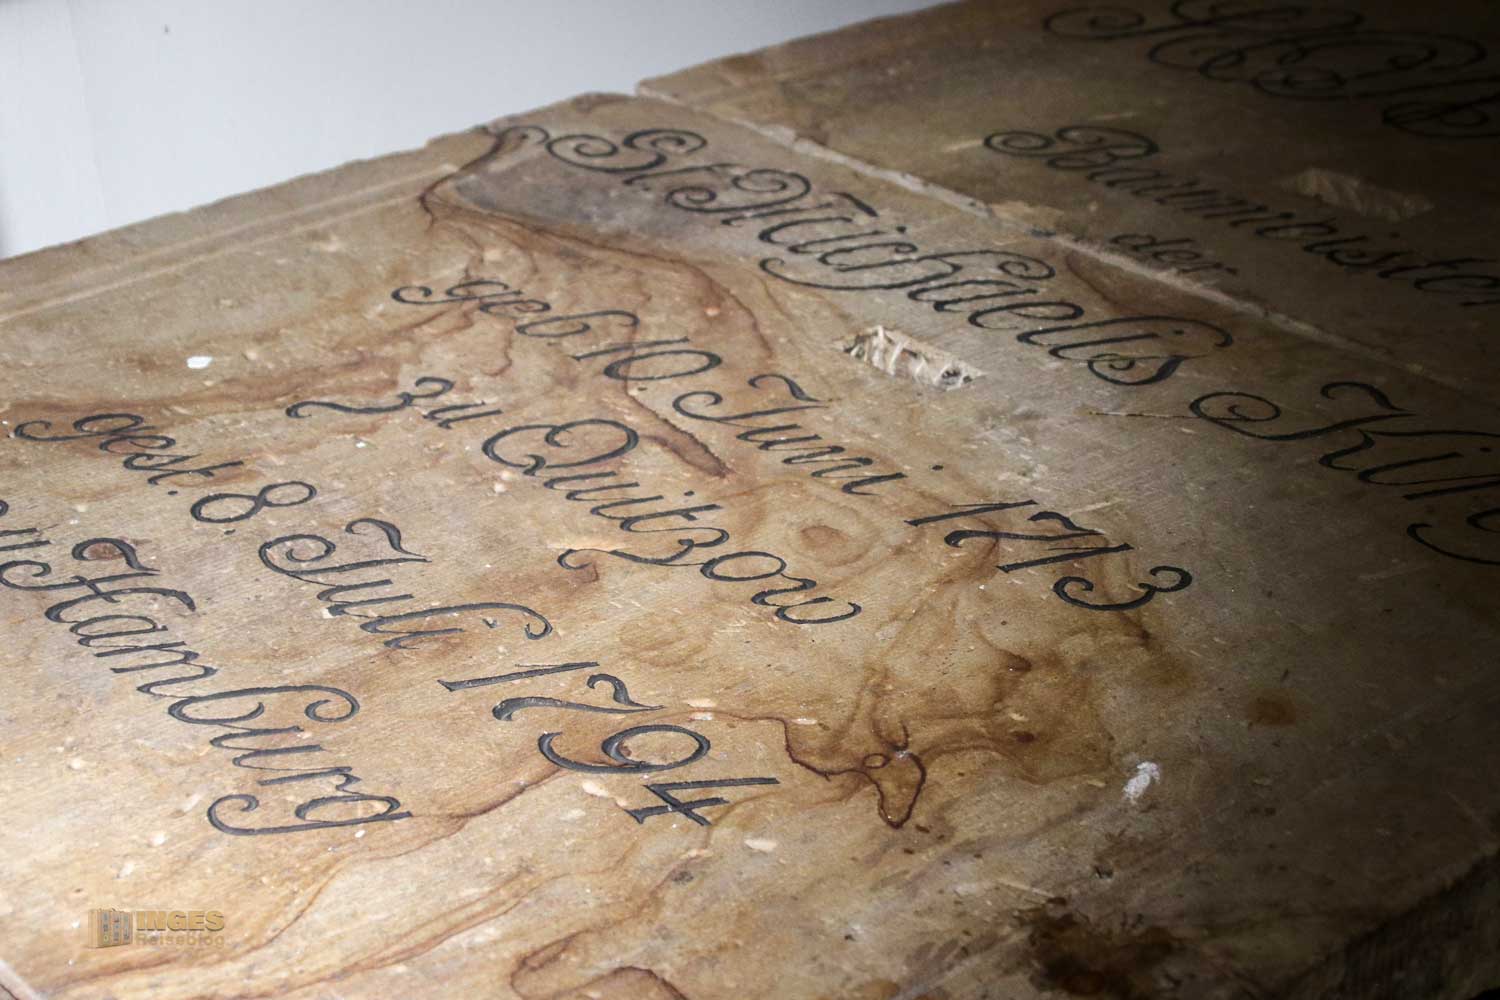 Baumeister
der
St. Michaelis Kir
geb 10 Juni 1713
zu Quitzow
gest. 8 Juli 1794
in Hamburg
INGES
Reiseblog